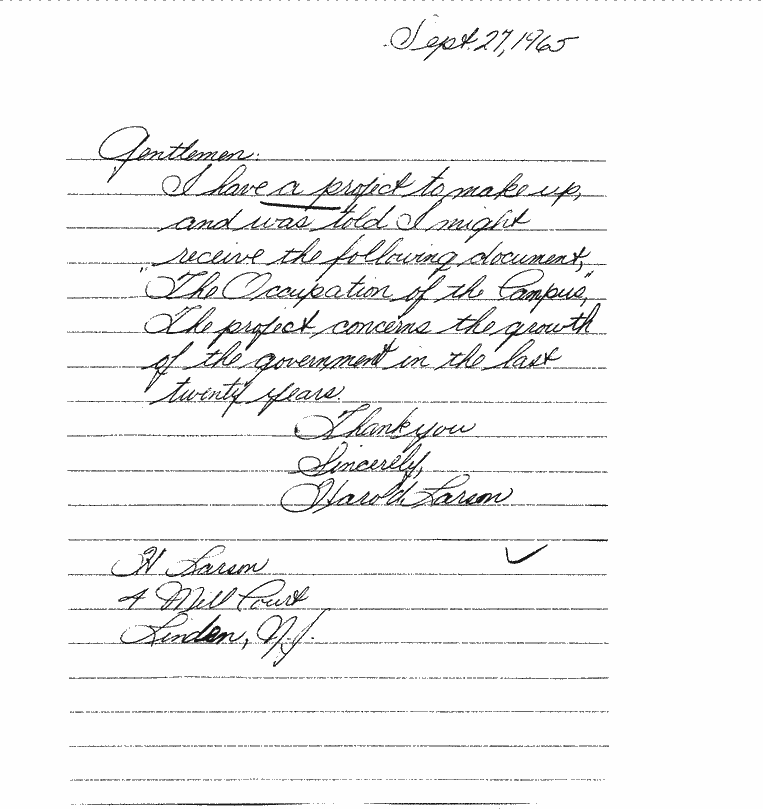 Sept. 27, 1965
Gentlemen:
I have a project to make up,
and was told I might
receive the following document,
"The Occupation of the Campus",
The project concerns the growth
of the government in the last
twenty years.
Thank you
Sincerely,
Harold Larson
H Larson
4 Mill Court
Linden, N.J.